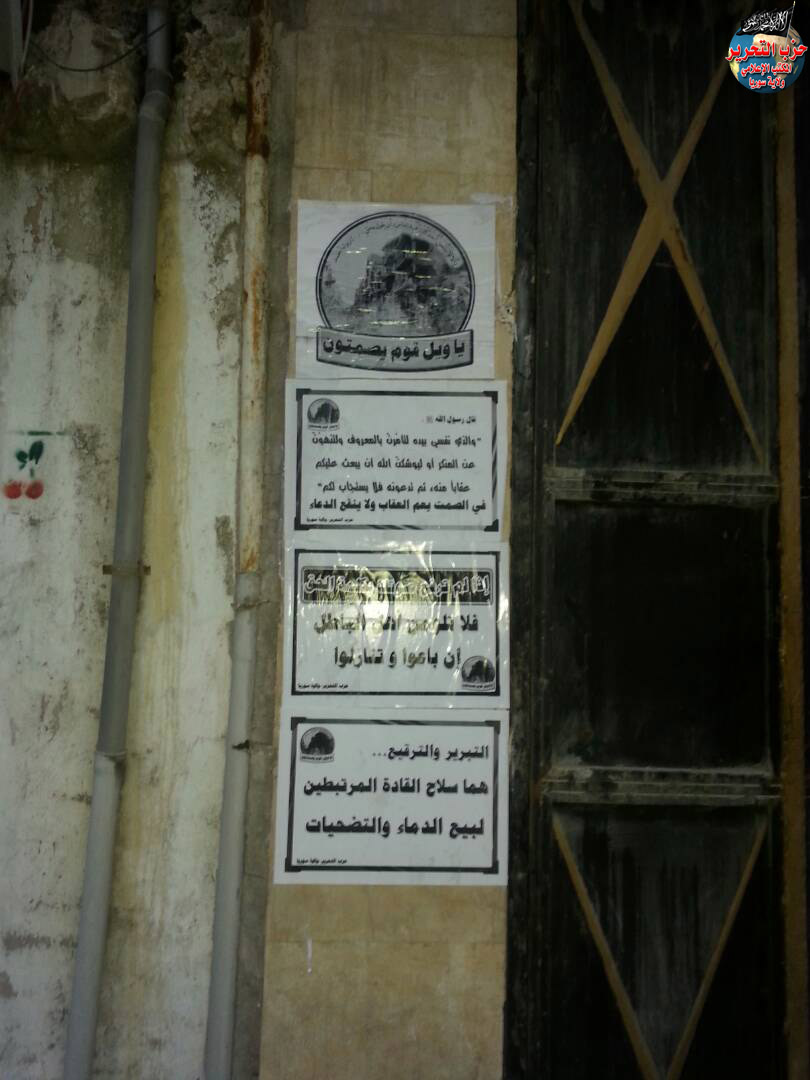 حزب التحرير
المكتب الإعلامي
ولاية سوريا
يا ويل قوم يصمتون
قال رسول الله ﷺ:
"والذي نفسي بيده لتأمرن بالمعروف ولتنهون
عن المنكر أو ليوشكن الله أن يبعث عليكم
عقابا منه، ثم تدعونه فلا يستجاب لكم"
في الصمت يعم العقاب ولا ينفع الدعاء
حزب التحرير ولاية سوريا
إذا لم ترفع صوتك بكلمة الحق
فلا تلومن أهل الباطل
إن باعوا و تنازلوا
حزب التحرير ولاية سوريا
التبرير والترقيع...
هما سلاح القادة المرتبطين
لبيع الدماء والتضحيات
حزب التحرير ولاية سوريا